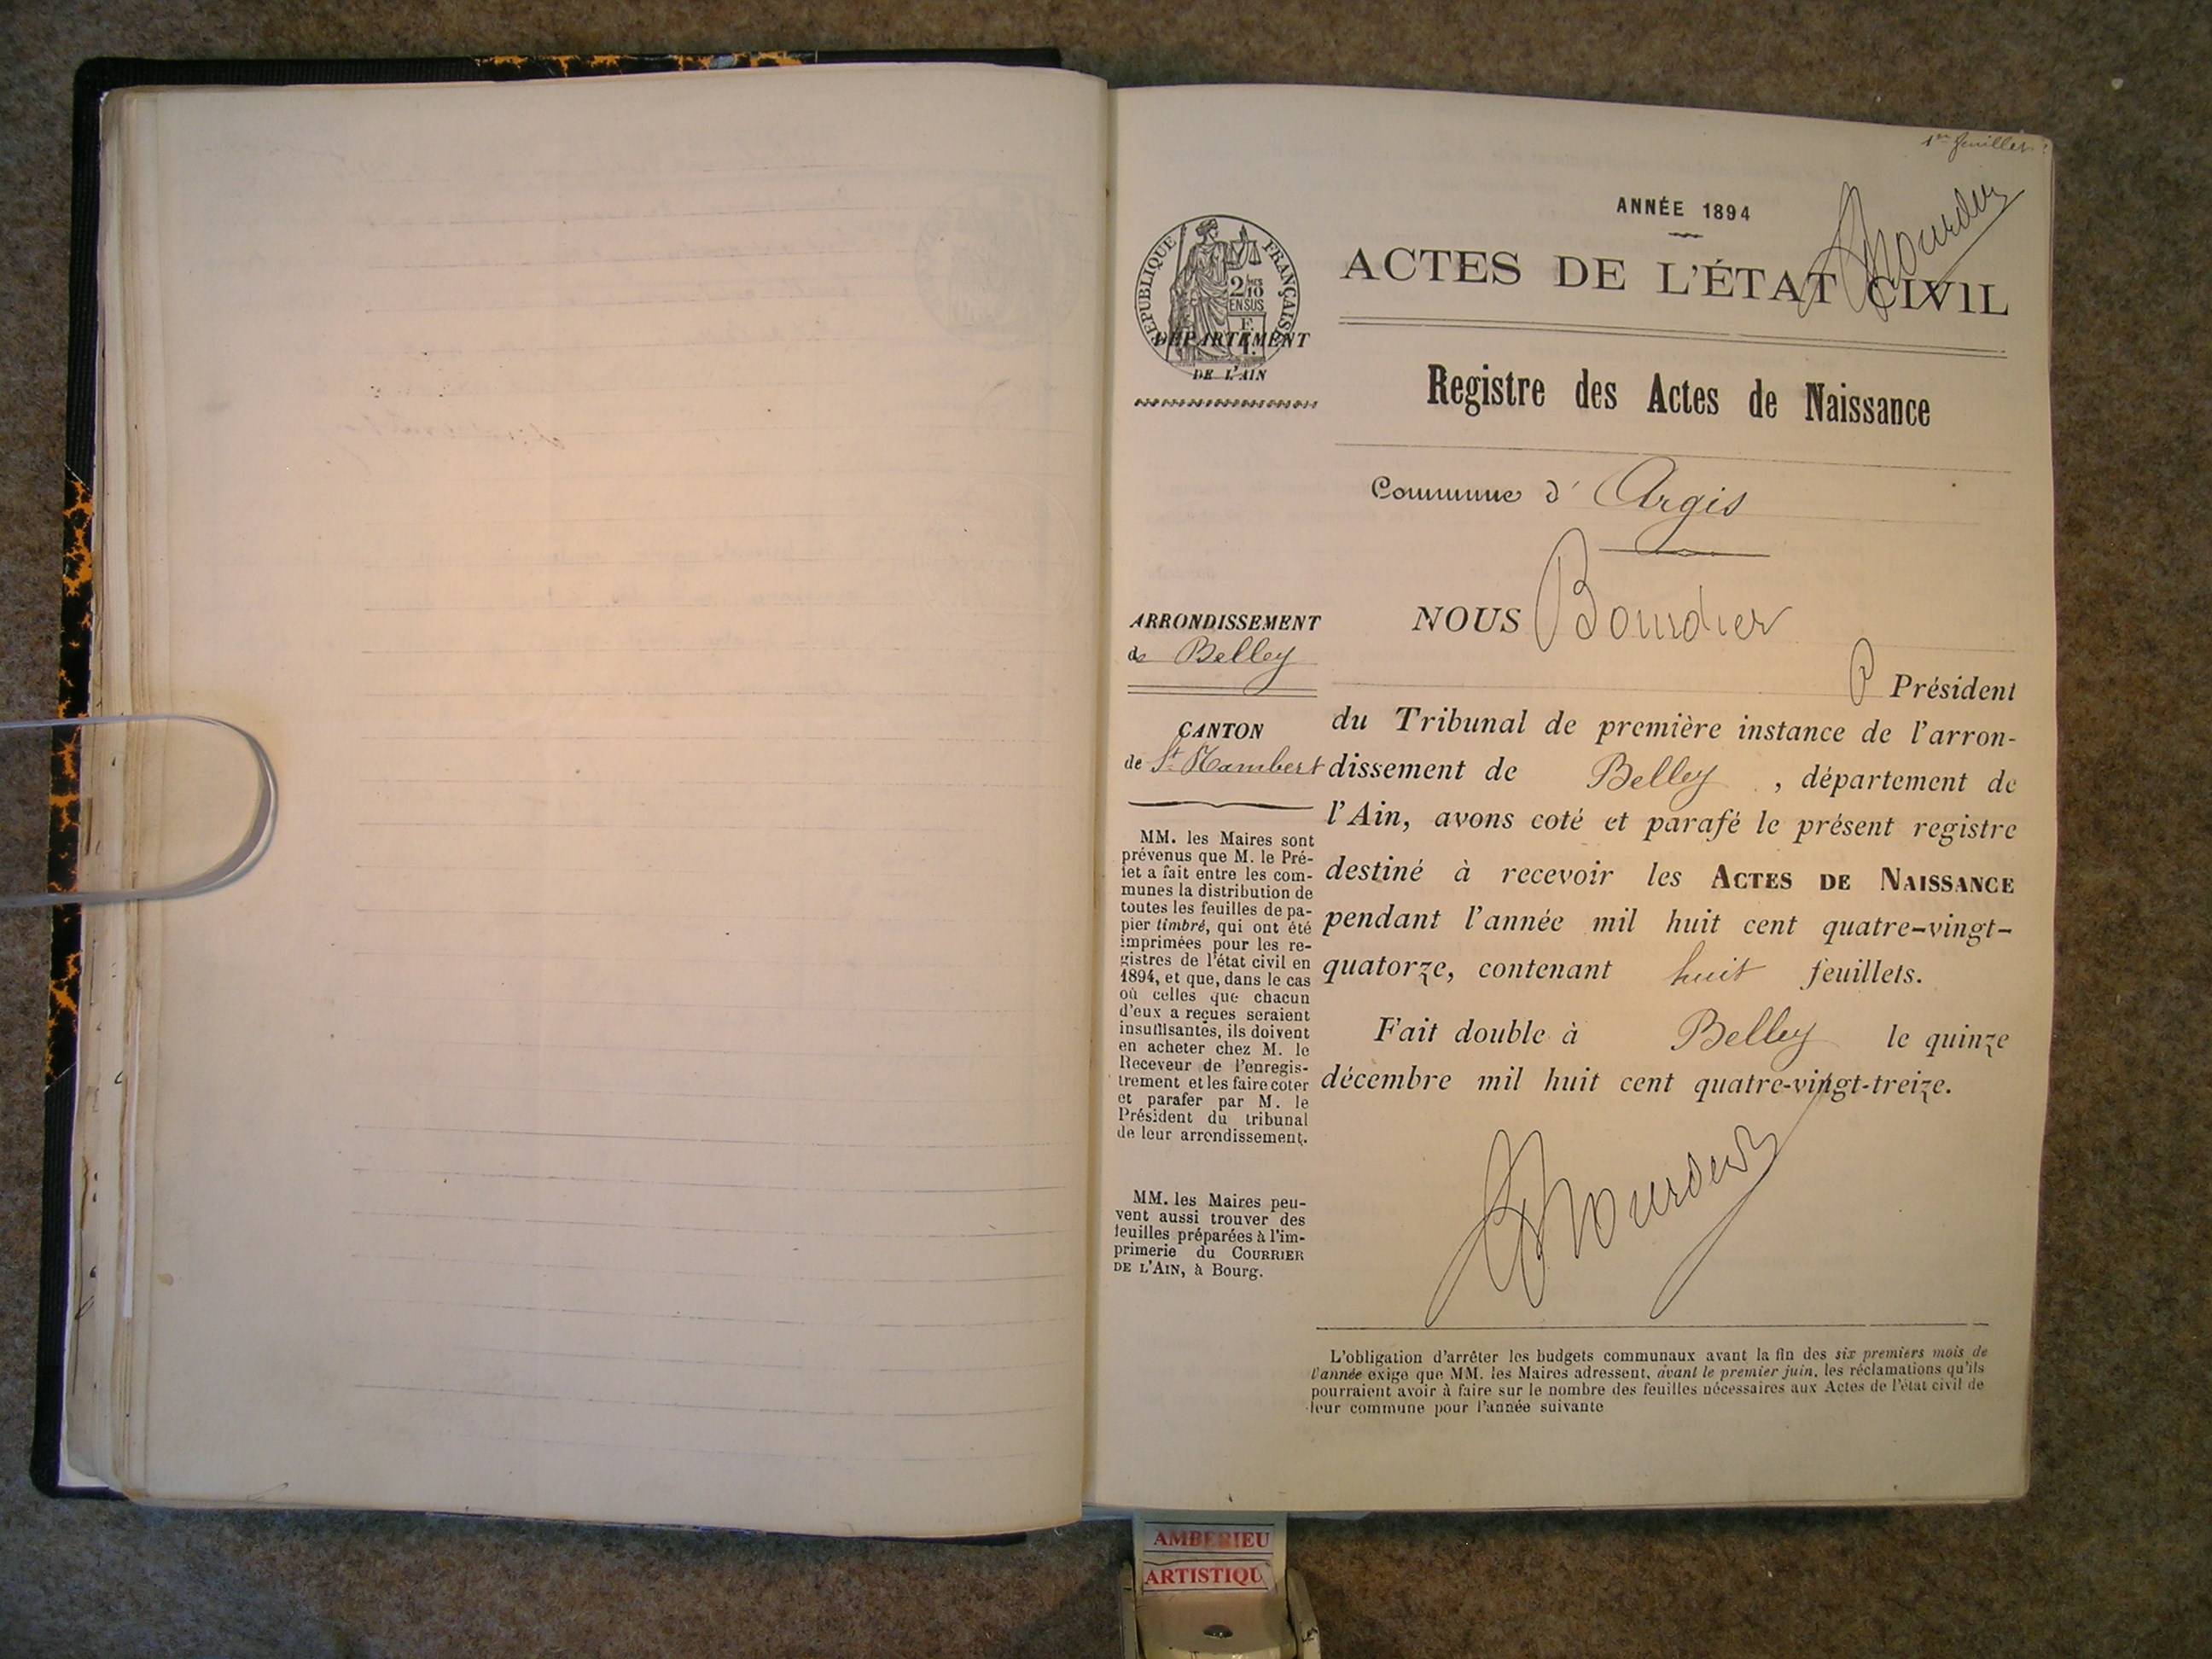 1er feuillet
ANNÉE 1894
ACTES DE L'ÉTAT CIVIL
RÉPUBLIQUE FRANÇAISE
2/10
EN SUS
DÉPARTEMENT
DE L'AIN
Registre des Actes de Naissance
Commune d' Argis
ARRONDISSEMENT
de Belley
CANTON
de St Rambert
MM. les Maires sont
prévenus que M. le Pré-
fet a fait entre les com-
munes la distribution de
toutes les feuilles de pa-
pier timbré, qui ont été
imprimées pour les re-
gistres de l'état civil en
1894, et que, dans le cas
où celles que chacun
d'eux a reçues seraient
insuffisantes, ils doivent
en acheter chez M. le
Receveur de l'enregis-
trement et les faire coter
et parafer par M. le
Président du tribunal
de leur arrondissement.
MM. les Maires peu-
vent aussi trouver des
feuilles préparées à l'im-
primerie du COURRIER
DE L'AIN, à Bourg.
NOUS Bourdier
P Président
du Tribunal de première instance de l'arron-
dissement de Belley , département de
l'Ain, avons coté et parafé le présent registre
destiné à recevoir les ACTES DE NAISSANCE
pendant l'année mil huit cent quatre-vingt-
quatorze, contenant huit feuillets.
Fait double à Belley le quinze
décembre mil huit cent quatre-vingt-treize.
Bourdier
L'obligation d'arrêter les budgets communaux avant la fin des six premiers mois de
l'année exige que MM. les Maires adressent, avant le premier juin, les réclamations qu'ils
pourraient avoir à faire sur le nombre des feuilles nécessaires aux Actes de l'état civil de
leur commune pour l'année suivante
AMBERIEU
ARTISTIQU